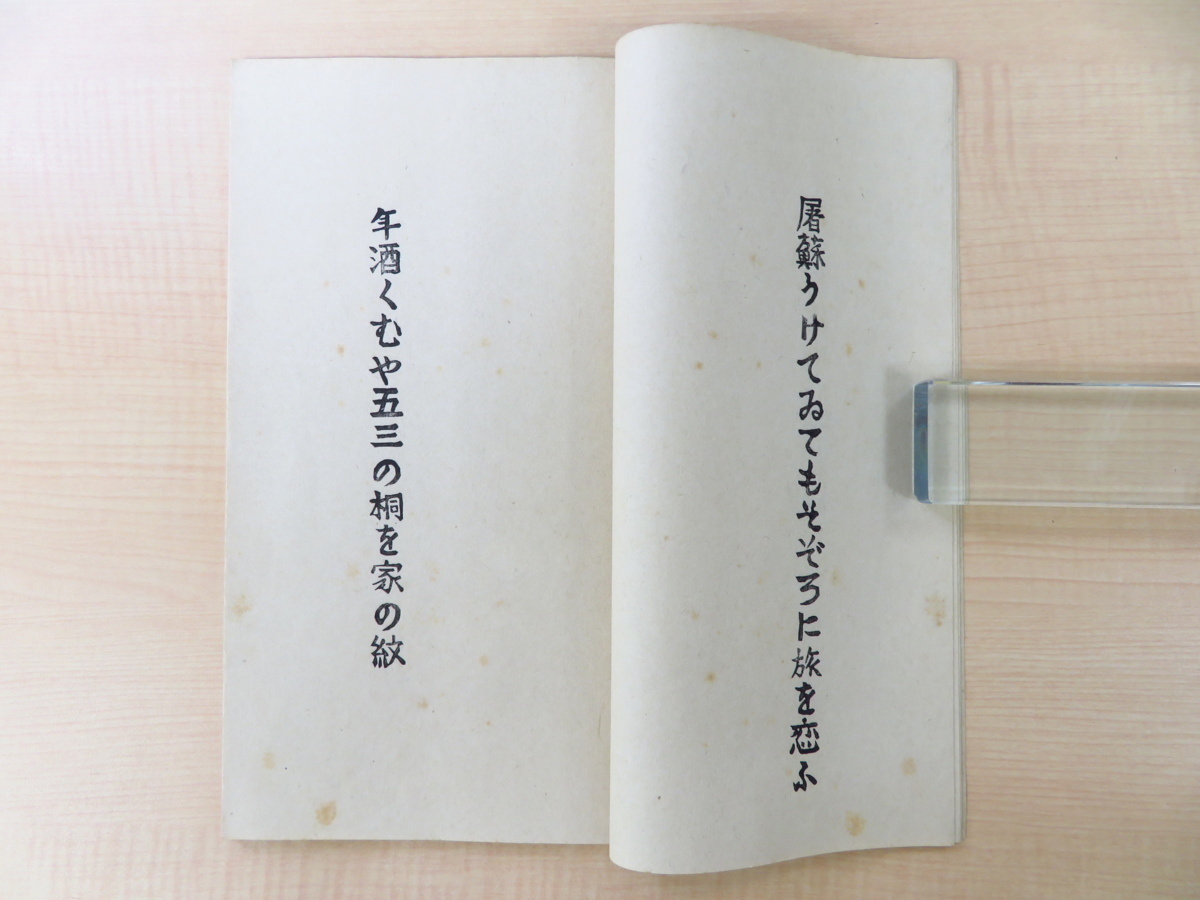 屠蘇うけてゐてもそぞろに旅を恋ふ
年酒くむや五三の桐を家の紋